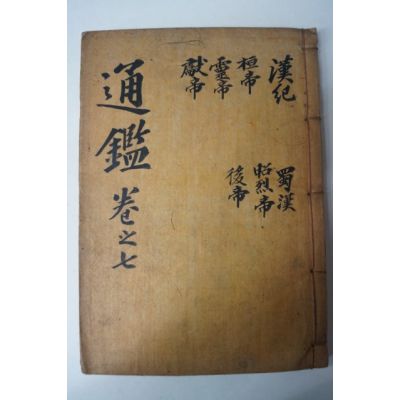 漢紀
桓帝
靈帝
獻帝
蜀漢
昭烈帝
後帝
通鑑 卷之七